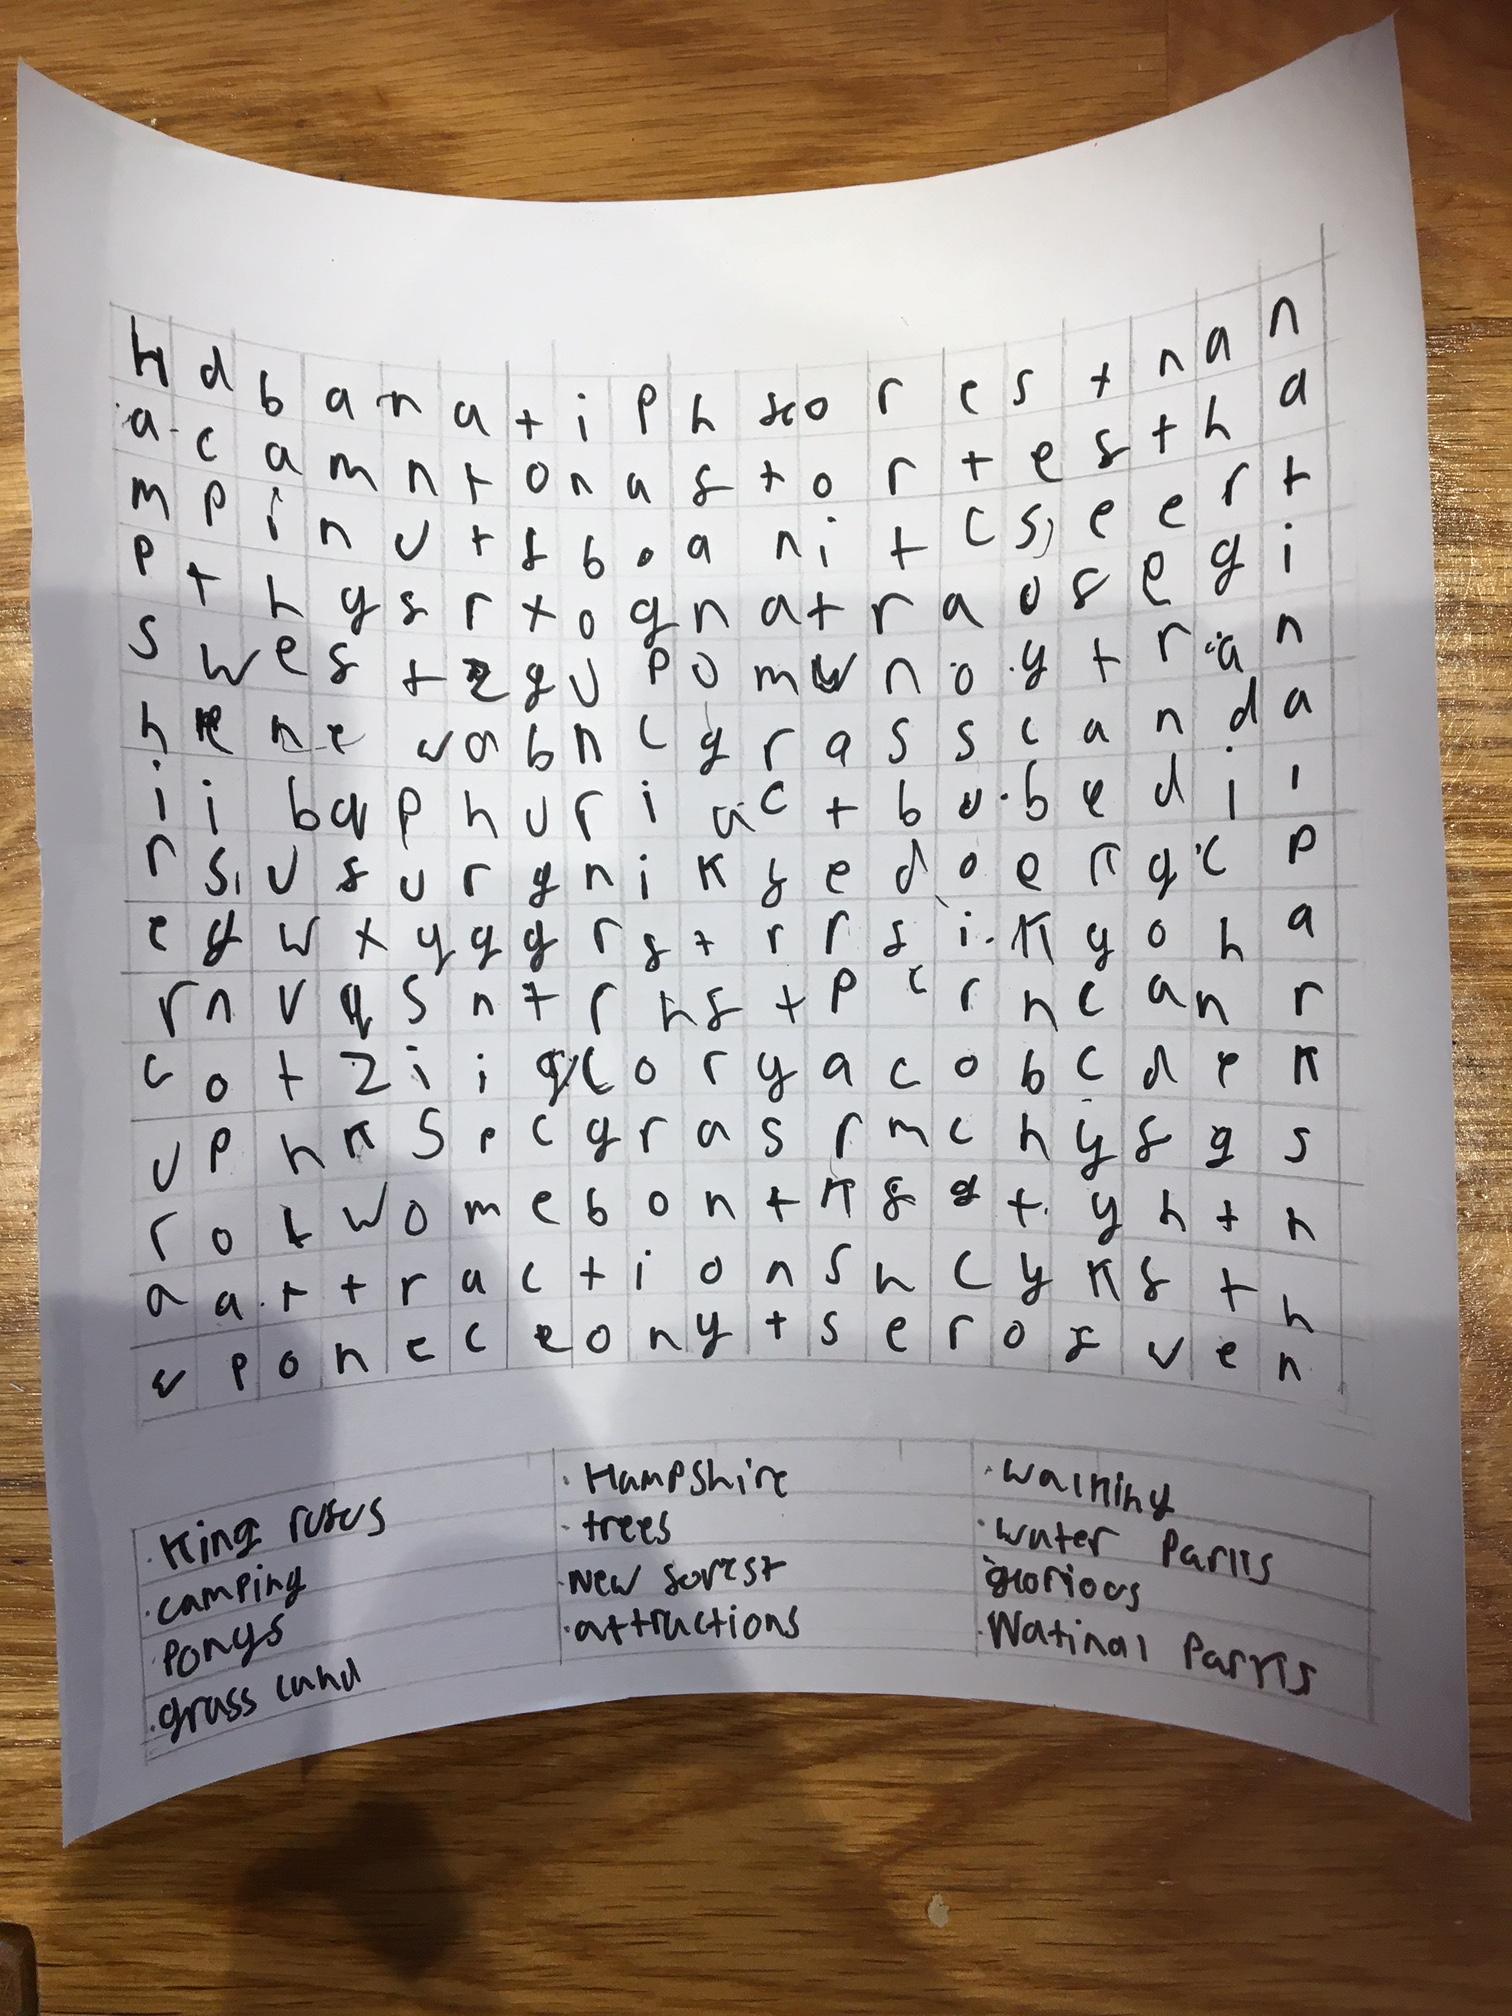 h d b a n a t i p h s o r e s t n a n
a c a m n t o n a s t o r t e s t h a
m p i n u t s b o a n i t c s e e r t
p t h g s r x o g n a t r a o s e g i
s w e s t z g u p o m w n o y t r a n
h e n e v a b n c g r a s s c a n d a
i i b a p h u r i a c t b u b e d i l
r s u s u r g n i k s e d o e k g c p
e g w x y g g r s t r r s i k y o h a
r n v q s n t r h s t p c r n c a n r
c o t z i i g l o r y a c o b c d e k
u p h k s p c g r a s r m c h y s g s
r o t w o m e b o n t k s g t y h t h
a a t t r a c t i o n s h c y k s t h
e p o n e c e o n y t s e r o f v e n
· King rufus
· camping
· Ponys
· grass land
· Hampshire
· trees
· New forest
· attractions
· walking
· water Parks
· glorious
· Natinal Parks